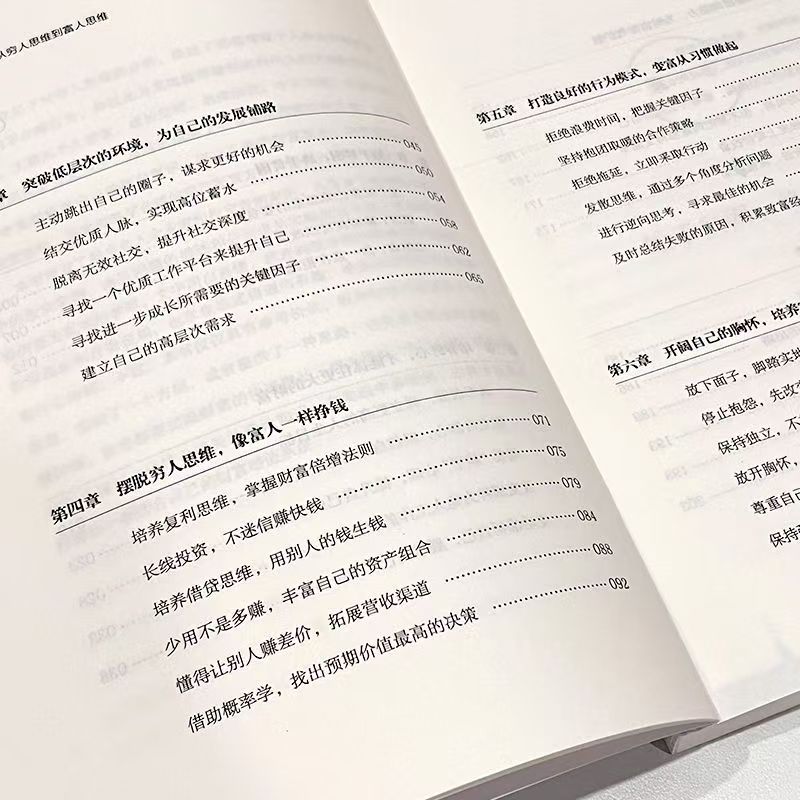 从穷人思维到富人思维
章 突破低层次的环境，为自己的发展铺路
主动跳出自己的圈子，谋求更好的机会 045
结交优质人脉，实现高位蓄水 050
脱离无效社交，提升社交深度 054
寻找一个优质工作平台来提升自己 058
寻找进一步成长所需要的关键因子 062
建立自己的高层次需求 065
第四章 摆脱穷人思维，像富人一样挣钱
培养复利思维，掌握财富倍增法则 071
长线投资，不迷信赚快钱 075
培养借贷思维，用别人的钱生钱 079
少用不是多赚，丰富自己的资产组合 084
懂得让别人赚差价，拓展营收渠道 088
借助概率学，找出预期价值最高的决策 092
第五章 打造良好的行为模式，变富从习惯做起
拒绝浪费时间，把握关键因子
坚持抱团取暖的合作策略
拒绝拖延，立即采取行动
发散思维，通过多个角度分析问题
进行逆向思考，寻求最佳的机会
及时总结失败的原因，积累致富经
第六章 开阔自己的胸怀，培养
放下面子，脚踏实地
停止抱怨，先改变
保持独立，不
放开胸怀，
尊重自己
保持